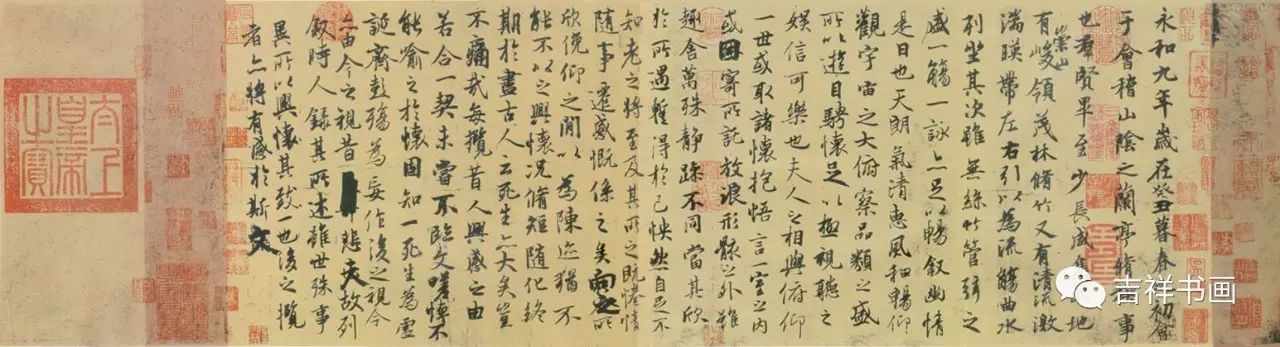 永和九年歲在癸丑暮春之初會
于會稽山陰之蘭亭脩稧事
也羣賢畢至少長咸集此地
有崇山峻領茂林脩竹又有清流激
湍暎帶左右引以為流觴曲水
列坐其次雖無絲竹管弦之
盛一觴一詠亦足以暢敘幽情
是日也天朗氣清惠風和暢仰
觀宇宙之大俯察品類之盛
所以遊目騁懷足以極視聽之
娛信可樂也夫人之相與俯仰
一世或取諸懷抱悟言一室之內
或因寄所託放浪形骸之外雖
趣舍萬殊靜躁不同當其欣
於所遇蹔得於己怏然自足不
知老之將至及其所之既惓情
隨事遷感慨係之矣向之所
欣俛仰之閒以為陳迹猶不
能不以之興懷況脩短隨化終
期於盡古人云死生亦大矣豈
不痛哉每攬昔人興感之由
若合一契未嘗不臨文嗟悼不
能喻之於懷固知一死生為虛
誕齊彭殤為妄作後之視今
亦由今之視昔悲夫故列
敘時人錄其所述雖世殊事
異所以興懷其致一也後之攬
者亦將有感於斯文
太上皇帝之寶
吉祥书画